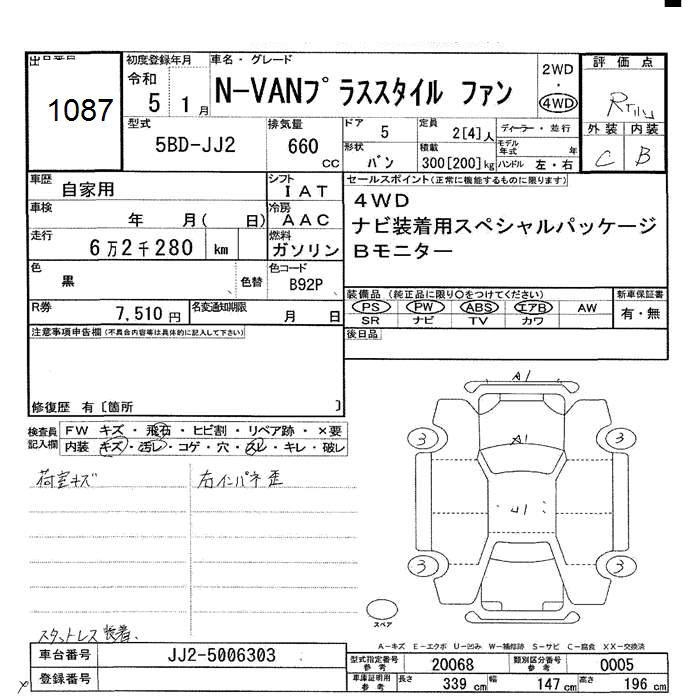 出品番号
1087
初度登録年月
令和
5 1月
車名・グレード
N-VANプラススタイル ファン
2WD
・
4WD
評価点
外装 内装
C B
型式
5BD-JJ2
排気量
660
cc
ドア
5
定員
2[4]人
ディーラー・並行
形状
バン
積載
300[200]kg
モデル年式 年
ハンドル 左・右
車歴
自家用
シフト
IAT
セールスポイント(正常に機能するものに限ります)
4WD
ナビ装着用スペシャルパッケージ
Bモニター
車検
年 月( 日)
冷房
AAC
走行
6万2千280 km
燃料
ガソリン
色
黒
色替
色コード
B92P
装備品(純正品に限り○をつけてください)
新車保証書
PS PW ABS エアB AW
有・無
SR ナビ TV カワ
R券
7,510円
名変通知期限
月 日
注意事項申告欄(不具合内容等は具体的に記入して下さい)
後日品
修復歴 有〔箇所 〕
検査員記入欄
FW キズ・飛石・ヒビ割・リペア跡・×要
内装 キズ・汚レ・コゲ・穴・スレ・キレ・破レ
荷室キズ
右インパネ歪
スタットレス装着.
A1
3 3
A1
U1
3 3
スペア
A-キズ E-エクボ U-凹み W-補修跡 S-サビ C-腐食 XX-交換済
車台番号
JJ2-5006303
型式指定番号
参考
20068
類別区分番号
参考
0005
登録番号
車庫証明用
参考
長さ 339cm
幅 147cm
高さ 196cm